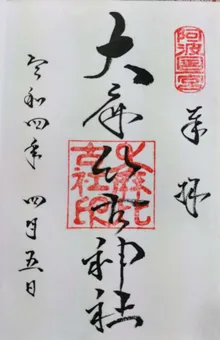 阿波國一宮
奉拝
大麻比古神社
大麻比
古社印
令和四年 四月五日